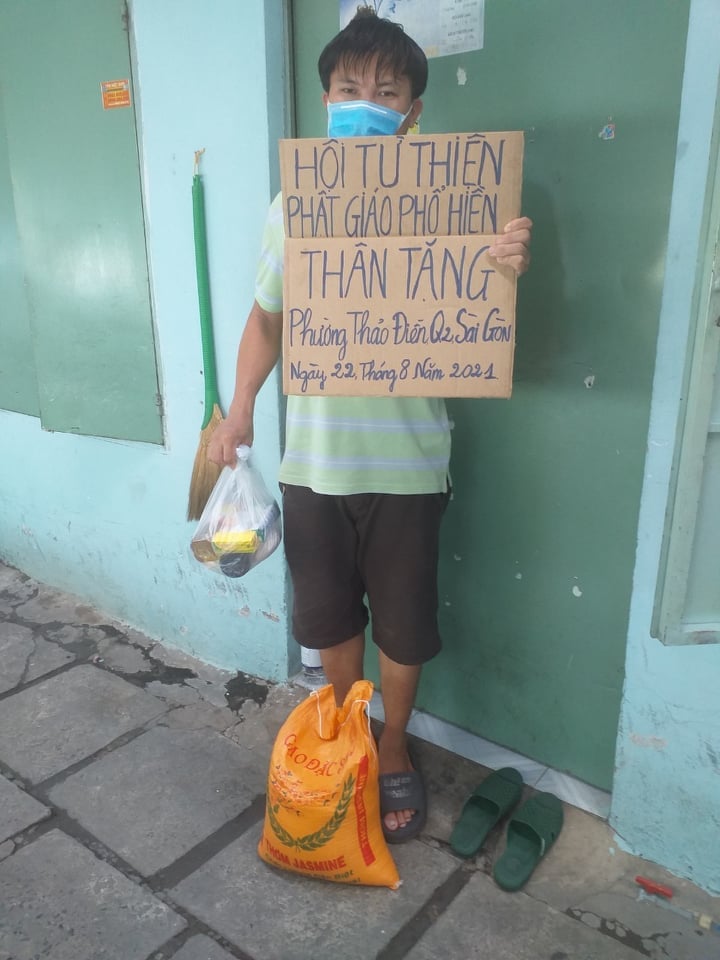 HỘI TỪ THIỆN
PHẬT GIÁO PHỔ HIỀN
THÂN TẶNG
Phường Thảo Điền, Q2, Sài Gòn
Ngày 22, Tháng 8 Năm 2021
GẠO ĐẶC
THƠM JASMINE